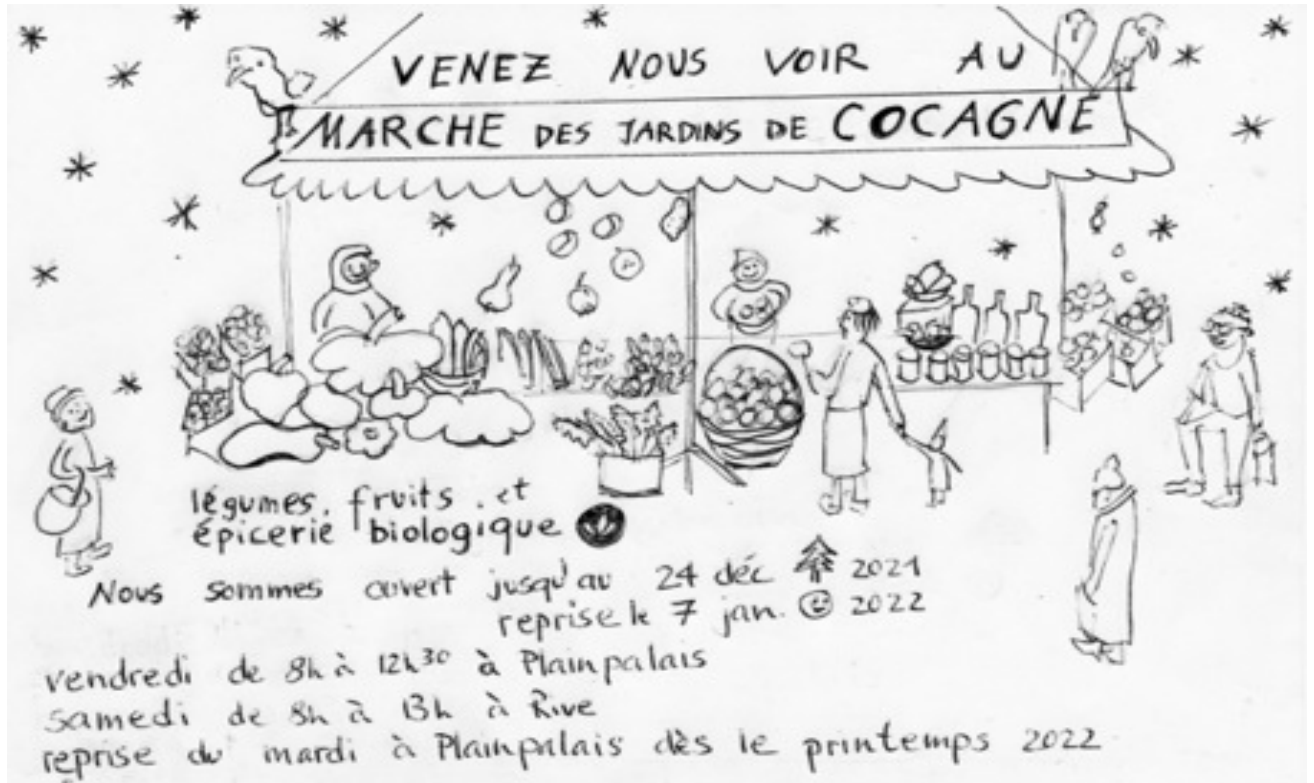 VENEZ NOUS VOIR AU
MARCHE DES JARDINS DE COCAGNE
légumes, fruits et
épicerie biologique
Nous sommes ouvert jusqu'au 24 déc 2021
reprise le 7 jan. 2022
vendredi de 8h à 12h30 à Plainpalais
samedi de 8h à 13h à Rive
reprise du mardi à Plainpalais dès le printemps 2022